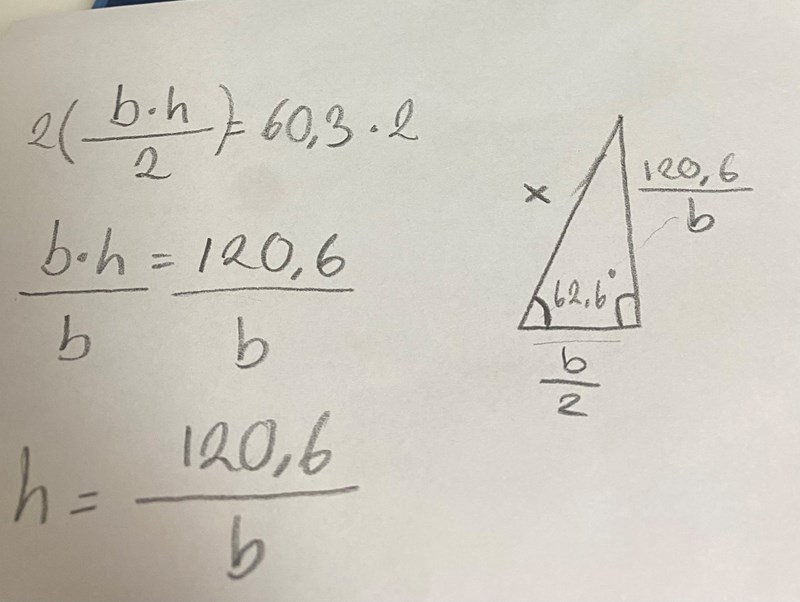 2(b·h/2) = 60,3 · 2
b·h/b = 120,6/b
h = 120,6/b
x
120,6/b
62,6°
b/2